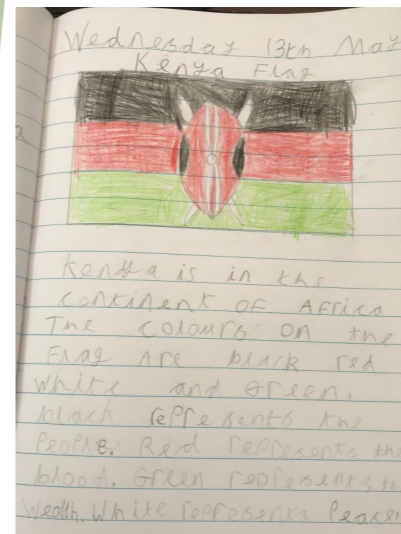 Wednesday 13th May
Kenya Flag
Kenya is in the
continent OF AFrica
The colours on the
Flag Are black red
white and Green.
black represents the
People. Red represents the
blood. Green represents th
Wealth. White represents Peace